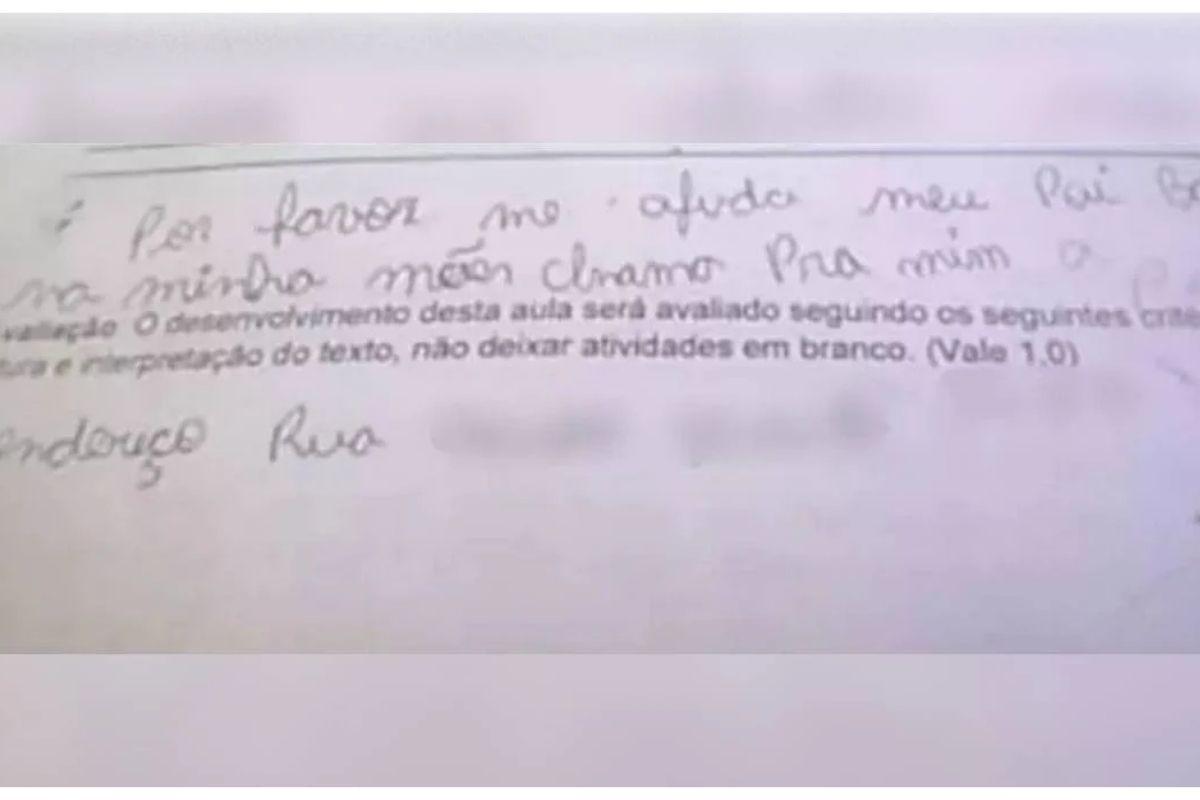 Por favor me ajuda meu Pai
na minha mãe chamo Pra mim a
valiação O desenvolvimento desta aula será avaliado seguindo os seguintes
tura e interpretação do texto, não deixar atividades em branco. (Vale 1,0)
endouço Rua